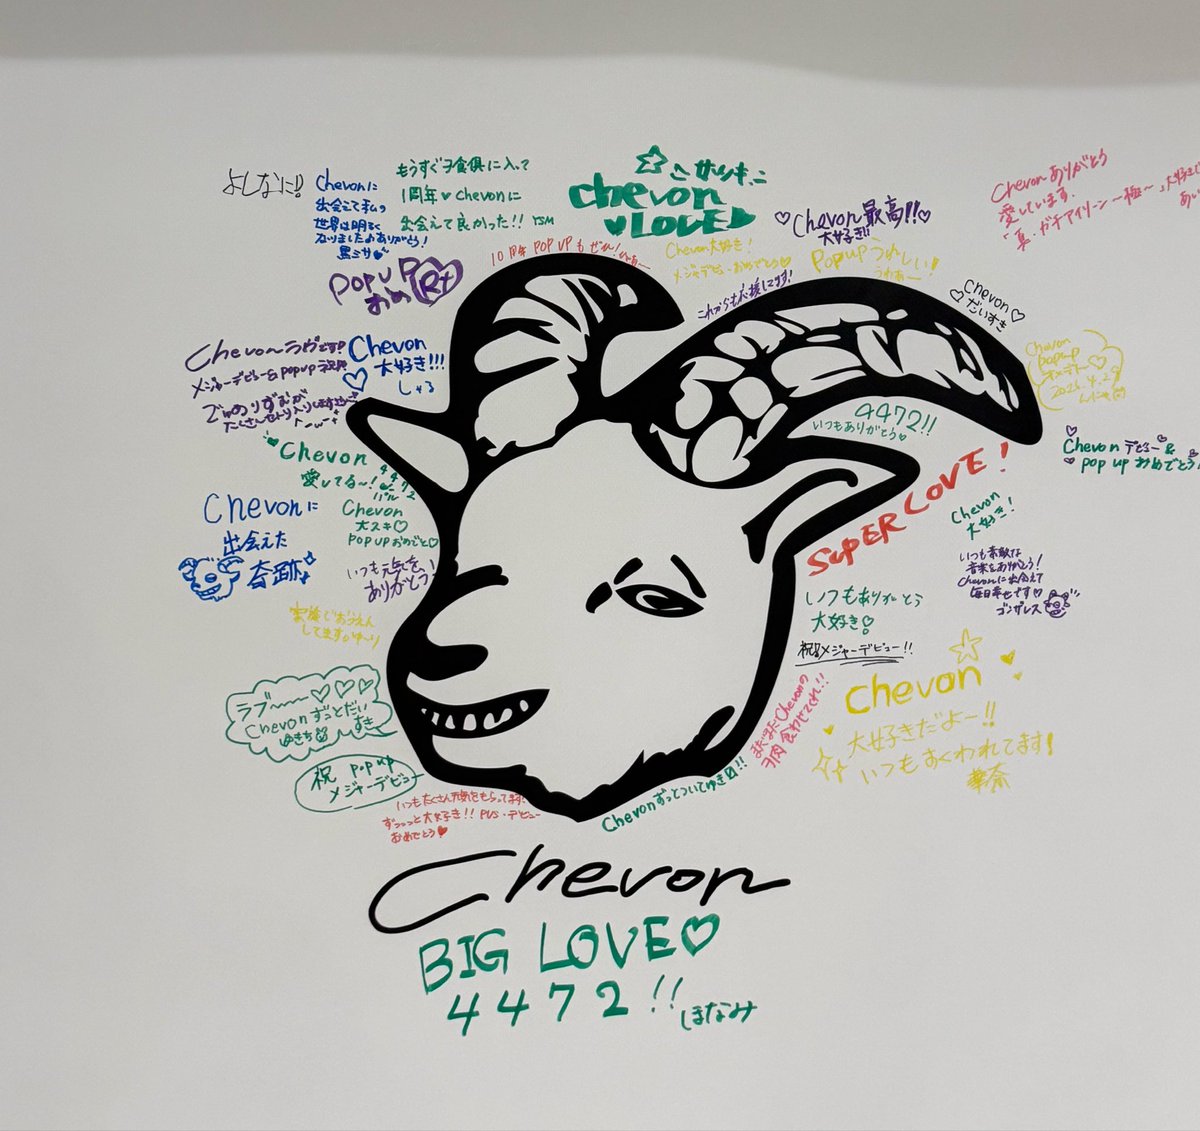 よしなに!!
Chevonに
出会えて私の
世界は明るく
なりました♪ありがとう!
もうすぐ子食倶に入って
1周年♥Chevonに
出会えて良かった!! YSM
popup
おめ
Chevon
♥LOVE♥
10周年 POP UPも
Chevon大好き!
メジャーデビューおめでとう♡
これからも応援してます!
♡Chevon最高!!♡
大好き!!
Popupうれしい!
うわあー
Chevonありがとう
愛しています。
Chevon♡
♡だいすき
Chevon
popup
オメデトー♡
2026.4.29
Chevonラヴです!
メジャーデビュー&popup
Chevon
大好き!!!
しゃろ
Chevon
愛してる〜!
4472
Chevon
大スキ♡
POPUPおめでと♡
Chevonに
出会えた
奇跡
いつも元気を
ありがとう!
家族でおうえん
してます。ゆ〜り
ラブ〜〜♡♡♡
Chevonずっとだい
すき
祝 POPup
メジャーデビュー
いつもたくさん元気をもらってます!
ずっっっと大好き!! PVS・デビュー
おめでとう♥
4472!!
いつもありがとう♡
SUPER LOVE!
♡Chevonデビュー&
♡pop upおめでとう!
Chevon
大好き!
いつも素敵な
音楽をありがとう!
Chevonに出会えて
毎日幸せです♡
ゴンザレス
いつもありがとう
大好き!
祝メジャーデビュー!!
まだまだChevonの
ヲ肉食わせてくれ!!
Chevon
大好きだよー!!
いつもすくわれてます!
華奈
Chevonずっとついてゆき〼!!
Chevon
BIG LOVE♡
4472!!
ほなみ